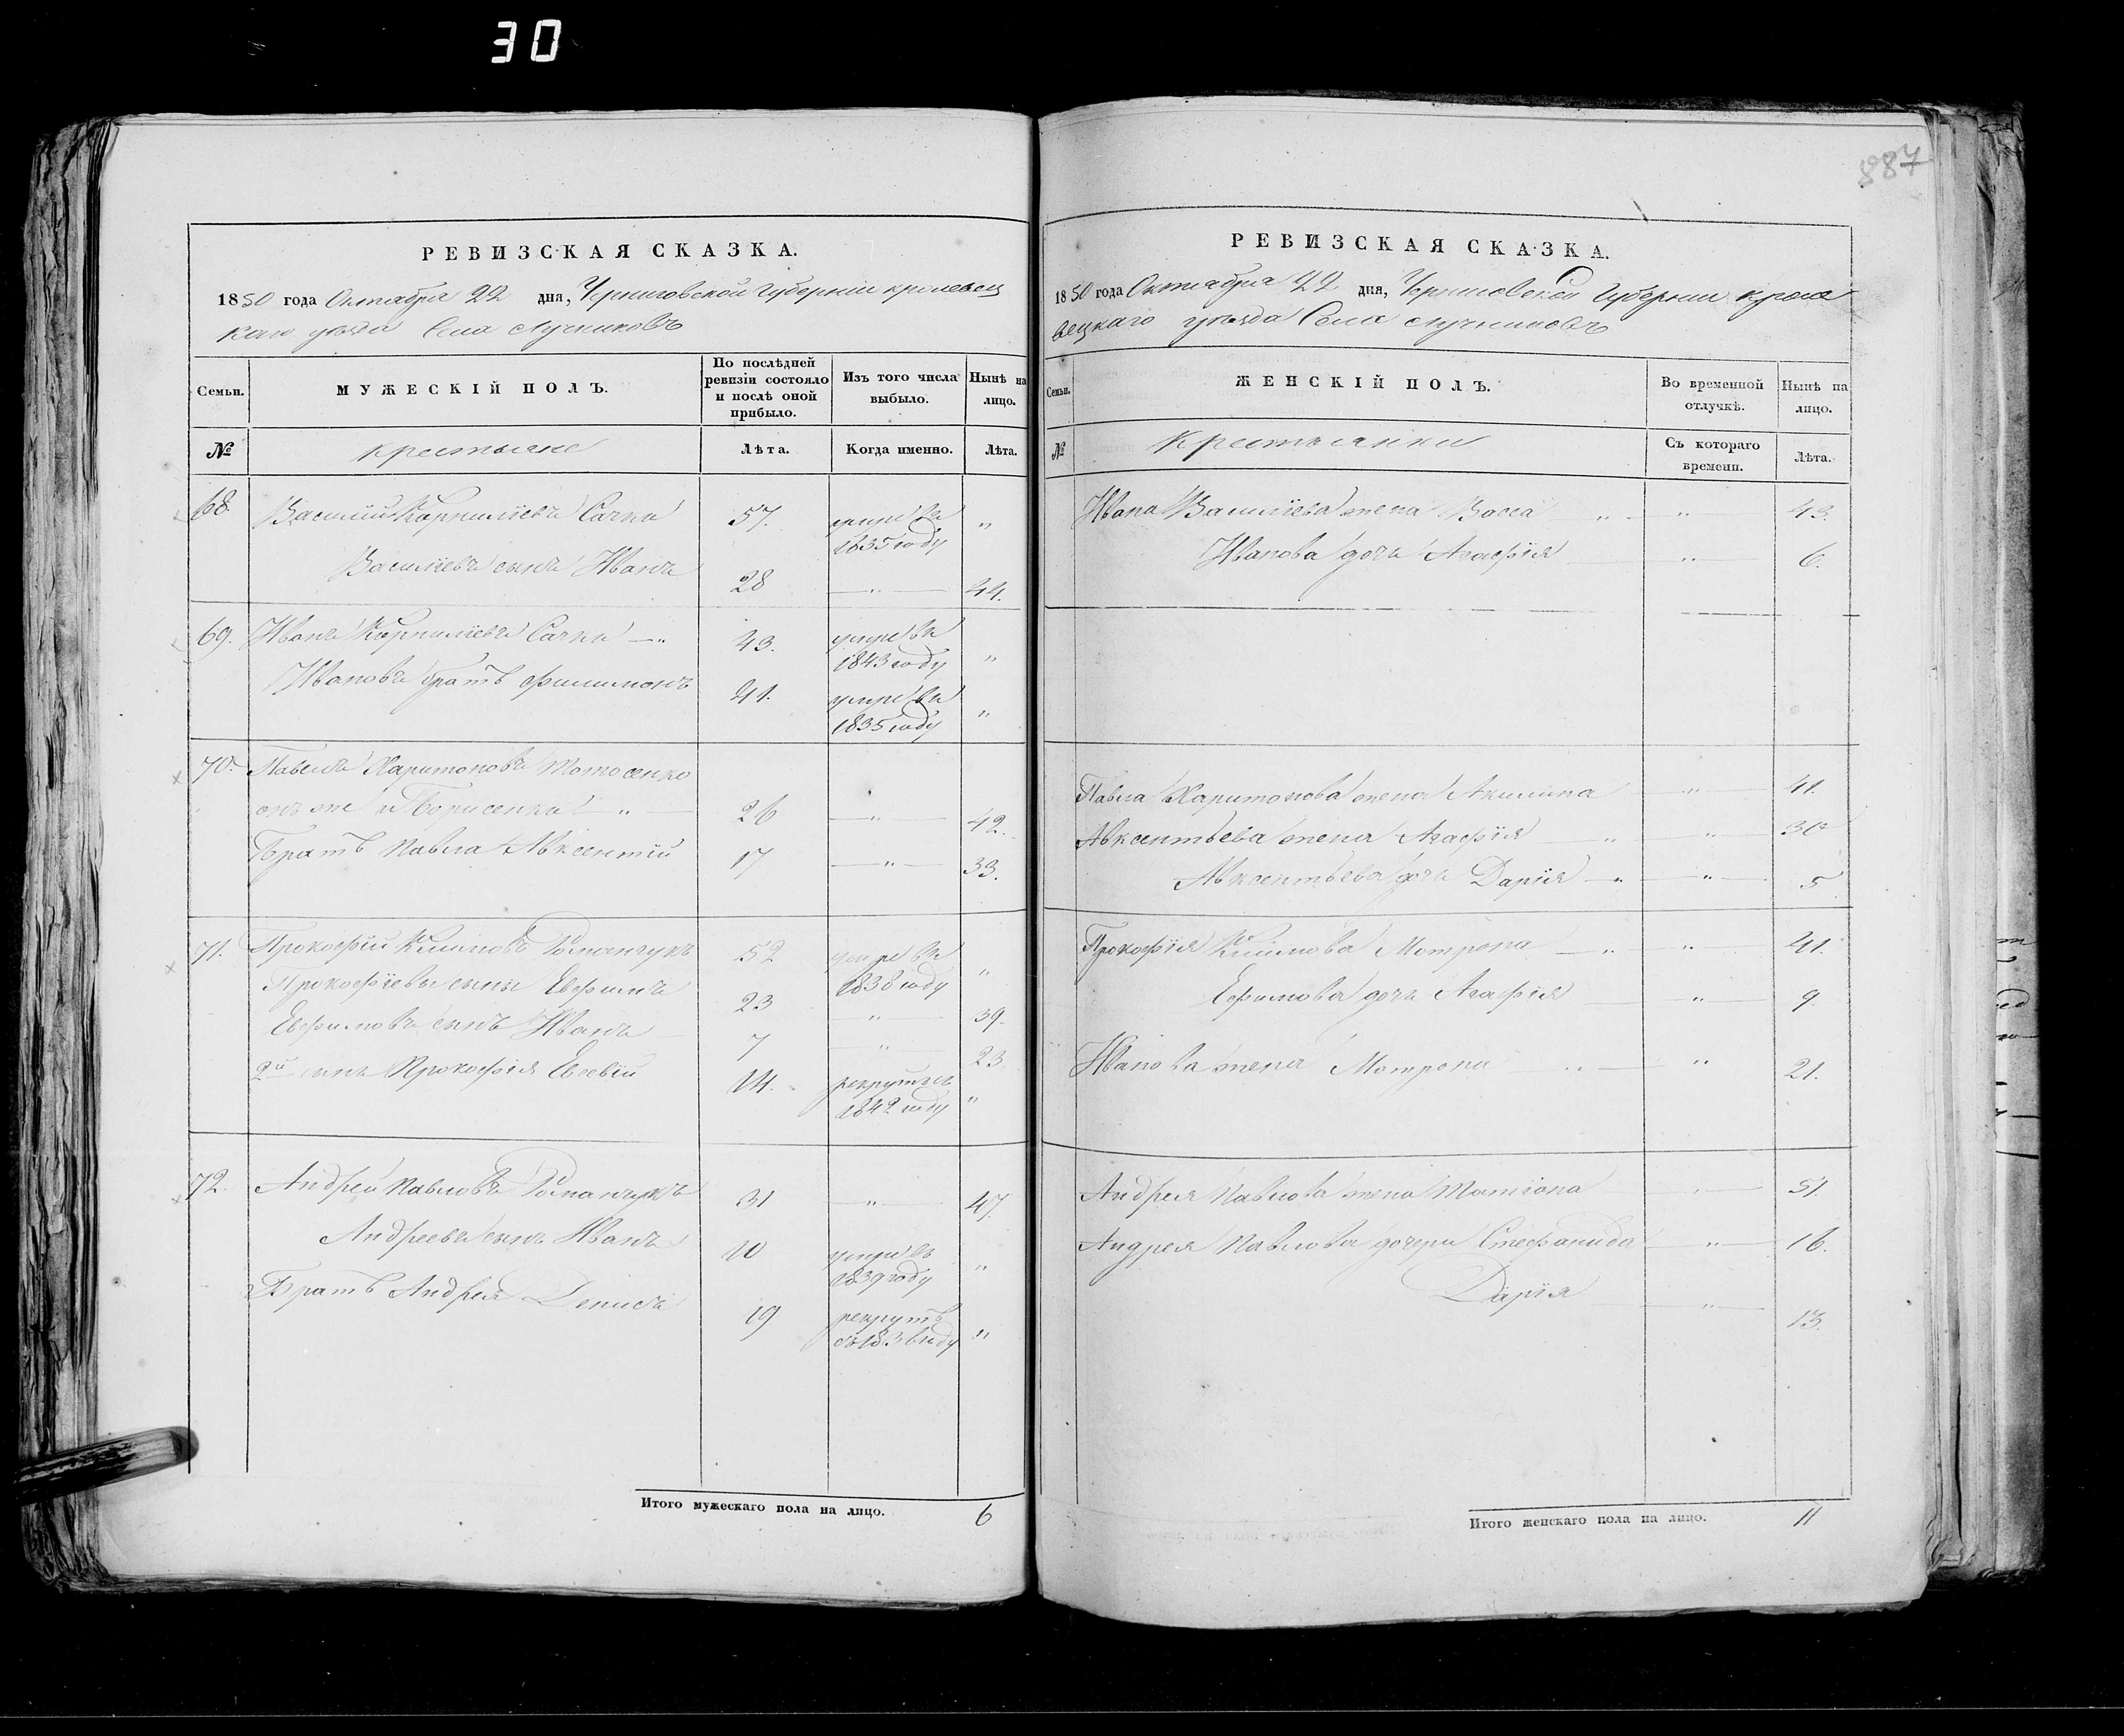 30
887
РЕВИЗСКАЯ СКАЗКА.
1850 года Октября 22 дня, Черниговской Губерніи кролевец
каго уезда Села Лучниковъ
Семьи.
МУЖЕСКІЙ ПОЛЪ.
По послѣдней ревизіи состояло и послѣ оной прибыло.
Изъ того числа выбыло.
Нынѣ на лицо.
№
крестьяне
Лѣта.
Когда именно.
Лѣта.
68. Василій Карпиліевъ Сачки 57. умре въ 1835 году „
Василіевъ сынъ Иванъ 28 — „ — 44.
69. Иванъ Карпиліевъ Сачки — „ 43. умре въ 1843 году „
Ивановъ братъ Филимонъ 41. умре въ 1835 году „
70. Павелъ Харитоновъ
онъ же и Борисенко — „ 26 — „ — 42.
Братъ Павла Авксентій 17 — „ — 33.
71. Прокофій Климовъ Романчукъ 52 умре въ 1838 году „
Прокофіевы сыны Евфимъ 23 — „ — 39.
Евфимовъ сынъ Иванъ 7 — „ — 23
2й сынъ Прокофія Евсевій 14. рекрутъ въ 1842 году „
72. Андрей Павловъ Романчукъ 31 — „ — 47.
Андреевъ сынъ Иванъ 10 умре въ 1839 году „
Братъ Андрея Денисъ 19 рекрутъ „
Итого мужескаго пола на лицо. 6
РЕВИЗСКАЯ СКАЗКА.
1850 года Октября 22 дня, Черниговской Губерніи кроле
вецкаго уезда Села Лучниковъ
Семьи.
ЖЕНСКІЙ ПОЛЪ.
Во временной отлучкѣ.
Нынѣ на лицо.
№
Крестьянки
Съ котораго времени.
Лѣта.
Ивана Василіева жена Васса „ — „ — 43.
Иванова дочь Агафія — „ — 6.
Павла Харитонова жена Акилина — „ — 41.
Авксентьева жена Агафія — „ — „ — 30
Авксентьева дочь Дарія — „ — „ — 5
Прокофія Климова Мотрона — „ — „ — 41.
Ефимова дочь Агафія — „ — 9.
Иванова жена Мотрона — „ — „ 21.
Андрея Павлова жена Матіона — „ — 51.
Андрея Павлова дочери Стефанида — „ — 16.
Дарія — „ — 13.
Итого женскаго пола на лицо. 11